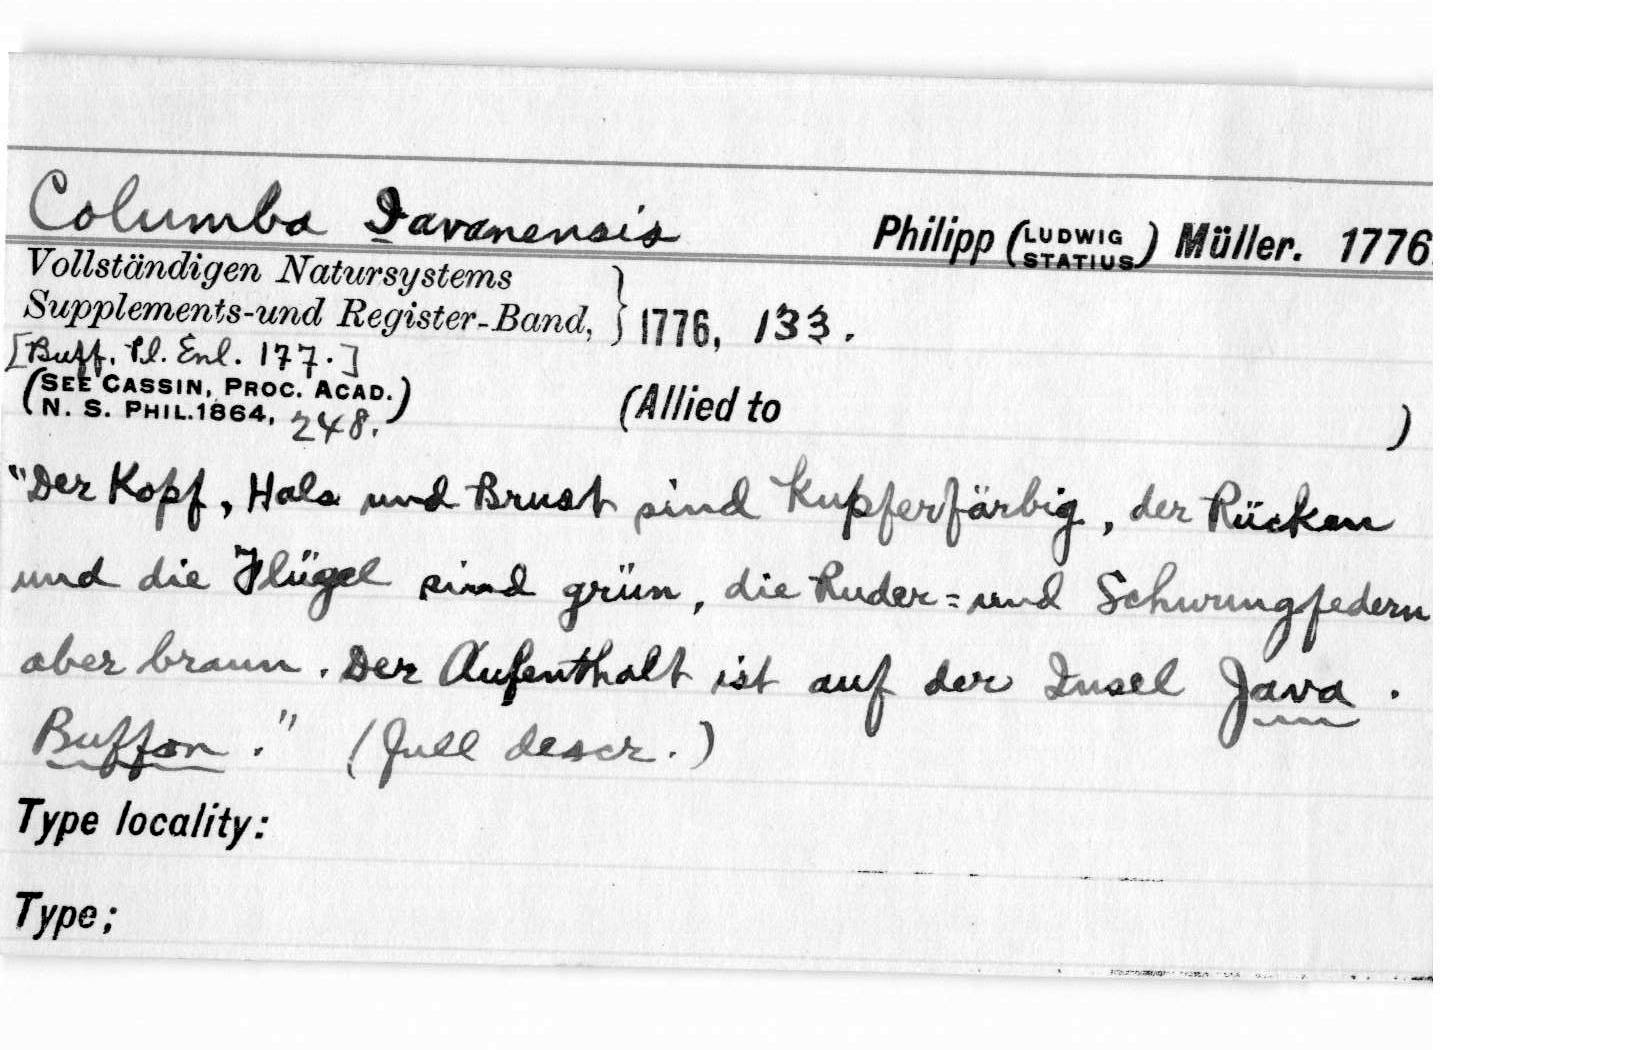 Columba Iavanensis
Philipp (LUDWIG STATIUS) Müller. 1776.
Vollständigen Natursystems
Supplements-und Register-Band, } 1776, 133.
[Buff. Pl. Enl. 177.]
(SEE CASSIN, PROC. ACAD.
N. S. PHIL. 1864, 248.)
(Allied to )
"Der Kopf, Hals und Brust sind Kupferfärbig, der Rücken
und die Flügel sind grün, die Ruder=und Schwungfedern
aber braun. Der Aufenthalt ist auf der Insel Java.
Buffon." (full descr.)
Type locality:
Type;